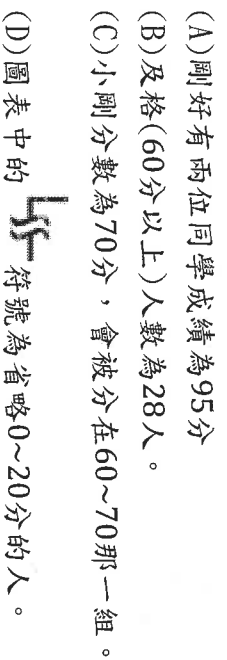 (A)剛好有兩位同學成績為95分
(B)及格(60分以上)人數為28人。
(C)小剛分數為70分，會被分在60~70那一組。
(D)圖表中的 符號為省略0~20分的人。